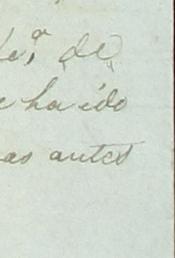 de
ha ido
as antes